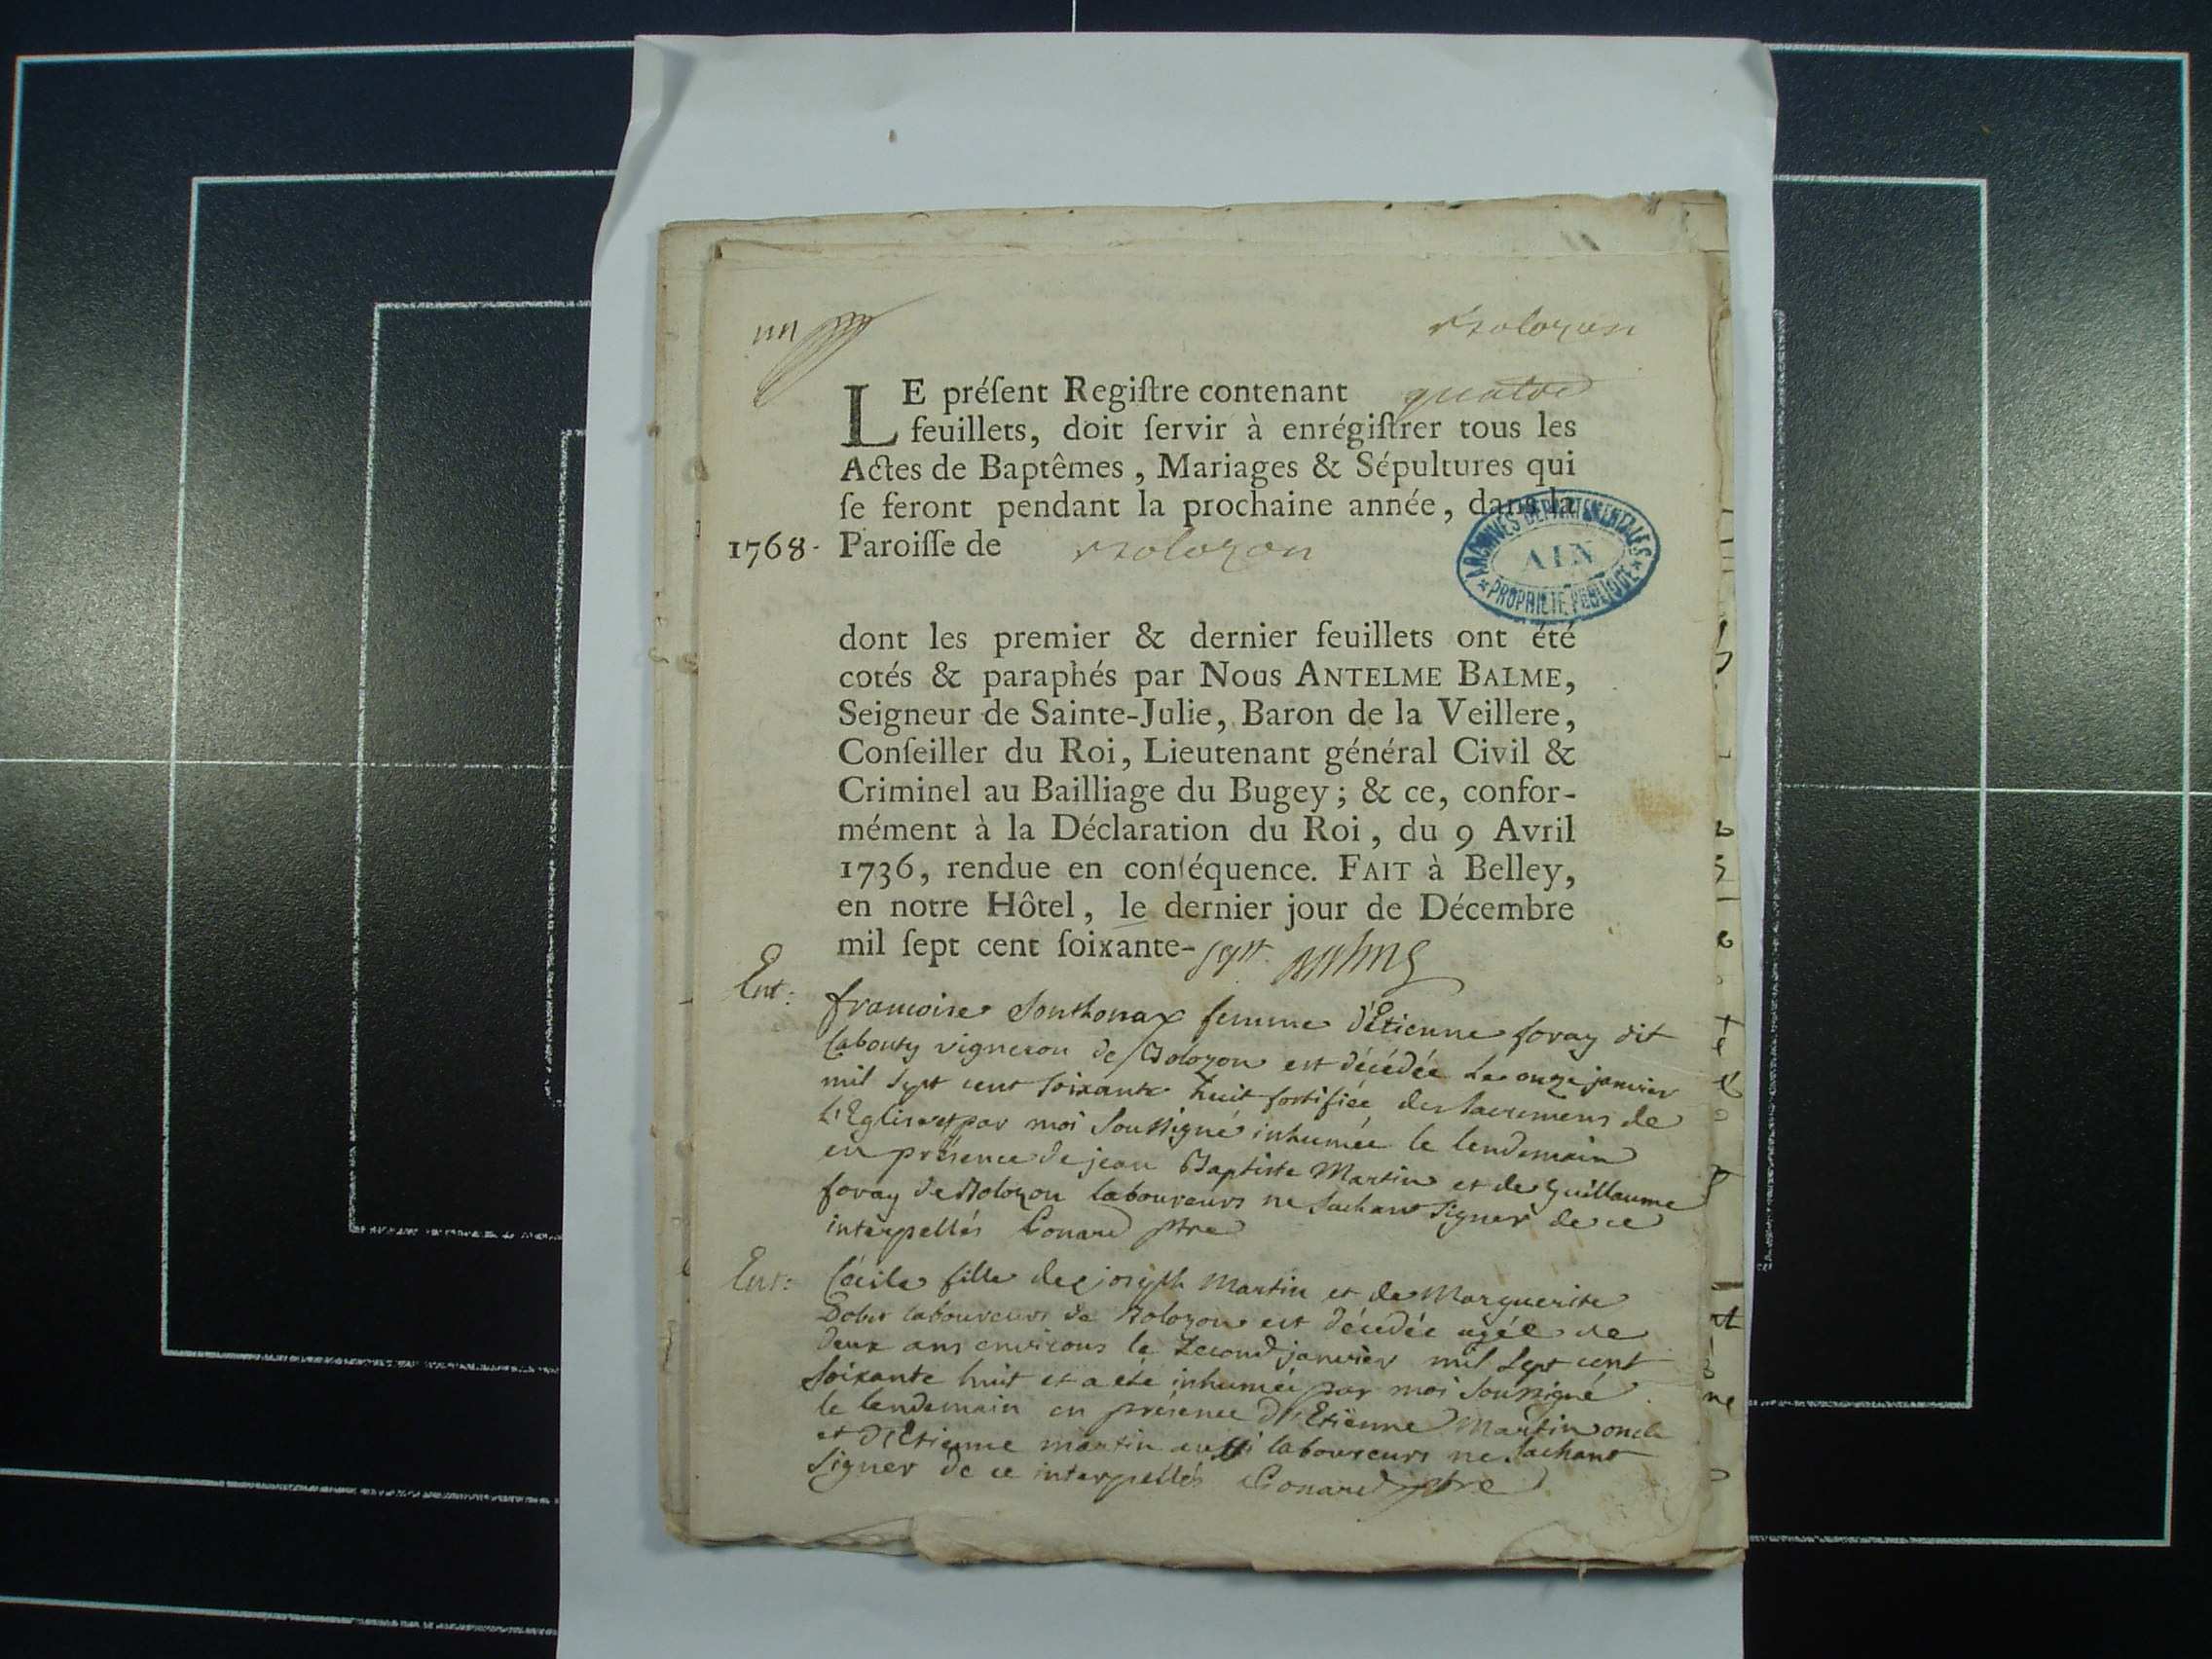 Bolozon
LE préſent Regiſtre contenant quatre
feuillets, doit ſervir à enrégiſtrer tous les
Actes de Baptêmes, Mariages & Sépultures qui
ſe feront pendant la prochaine année, dans la
1768. Paroiſſe de Bolozon
ARCHIVES DÉPARTEMENTALES
AIN
* PROPRIÉTÉ PUBLIQUE *
dont les premier & dernier feuillets ont été
cotés & paraphés par Nous ANTELME BALME,
Seigneur de Sainte-Julie, Baron de la Veillere,
Conſeiller du Roi, Lieutenant général Civil &
Criminel au Bailliage du Bugey; & ce, confor-
mément à la Déclaration du Roi, du 9 Avril
1736, rendue en conſéquence. FAIT à Belley,
en notre Hôtel, le dernier jour de Décembre
mil ſept cent ſoixante-sept. Balme
Ent: francoise Sonthonax femme d'Etienne foray dit
vigneron de Bolozon est décédée Le onze janvier
mil Sept cent Soixante huit fortifiée des Sacremens de
L'Eglise et par moi Soussigné inhumée le lendemain
en présence de jean Baptiste Martin et de Guillaume
foray de Bolozon laboureurs ne Sachant Signer de ce
interpellés Gonard ptre
Ent: Cécile fille de joseph Martin et de Marguerite
laboureurs de Bolozon est décédée agée de
deux ans environs le Second janvier mil Sept cent
Soixante huit et a été inhumée par moi Soussigné
le lendemain en présence d'Etienne Martin oncle
et d'Etienne martin aussi laboureurs ne Sachant
Signer de ce interpellés Gonard ptre